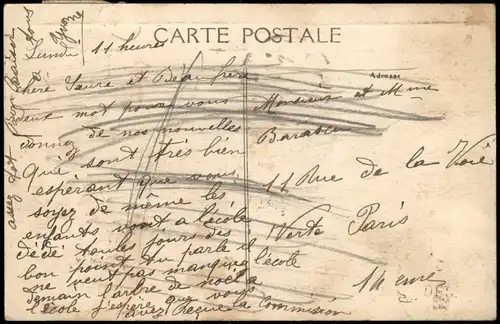 CARTE POSTALE
Lundi 11 heures
chère Saure et Beau frère
deux mot pour vous
donnez de nos nouvelles
qui sont très bien
espérant que vous
soyez de meme les
enfants vont a l'école
Dédé toules jours des
bon point Du parle d
ne veut pas manqué l'école
demain l'arbre de noël a
l'école j'espère que vous
avez reçue la commission
Adresse
Monsieur et Mme
11 Rue de la Voie
Verte Paris
14 eme
Bon baiser
a tous